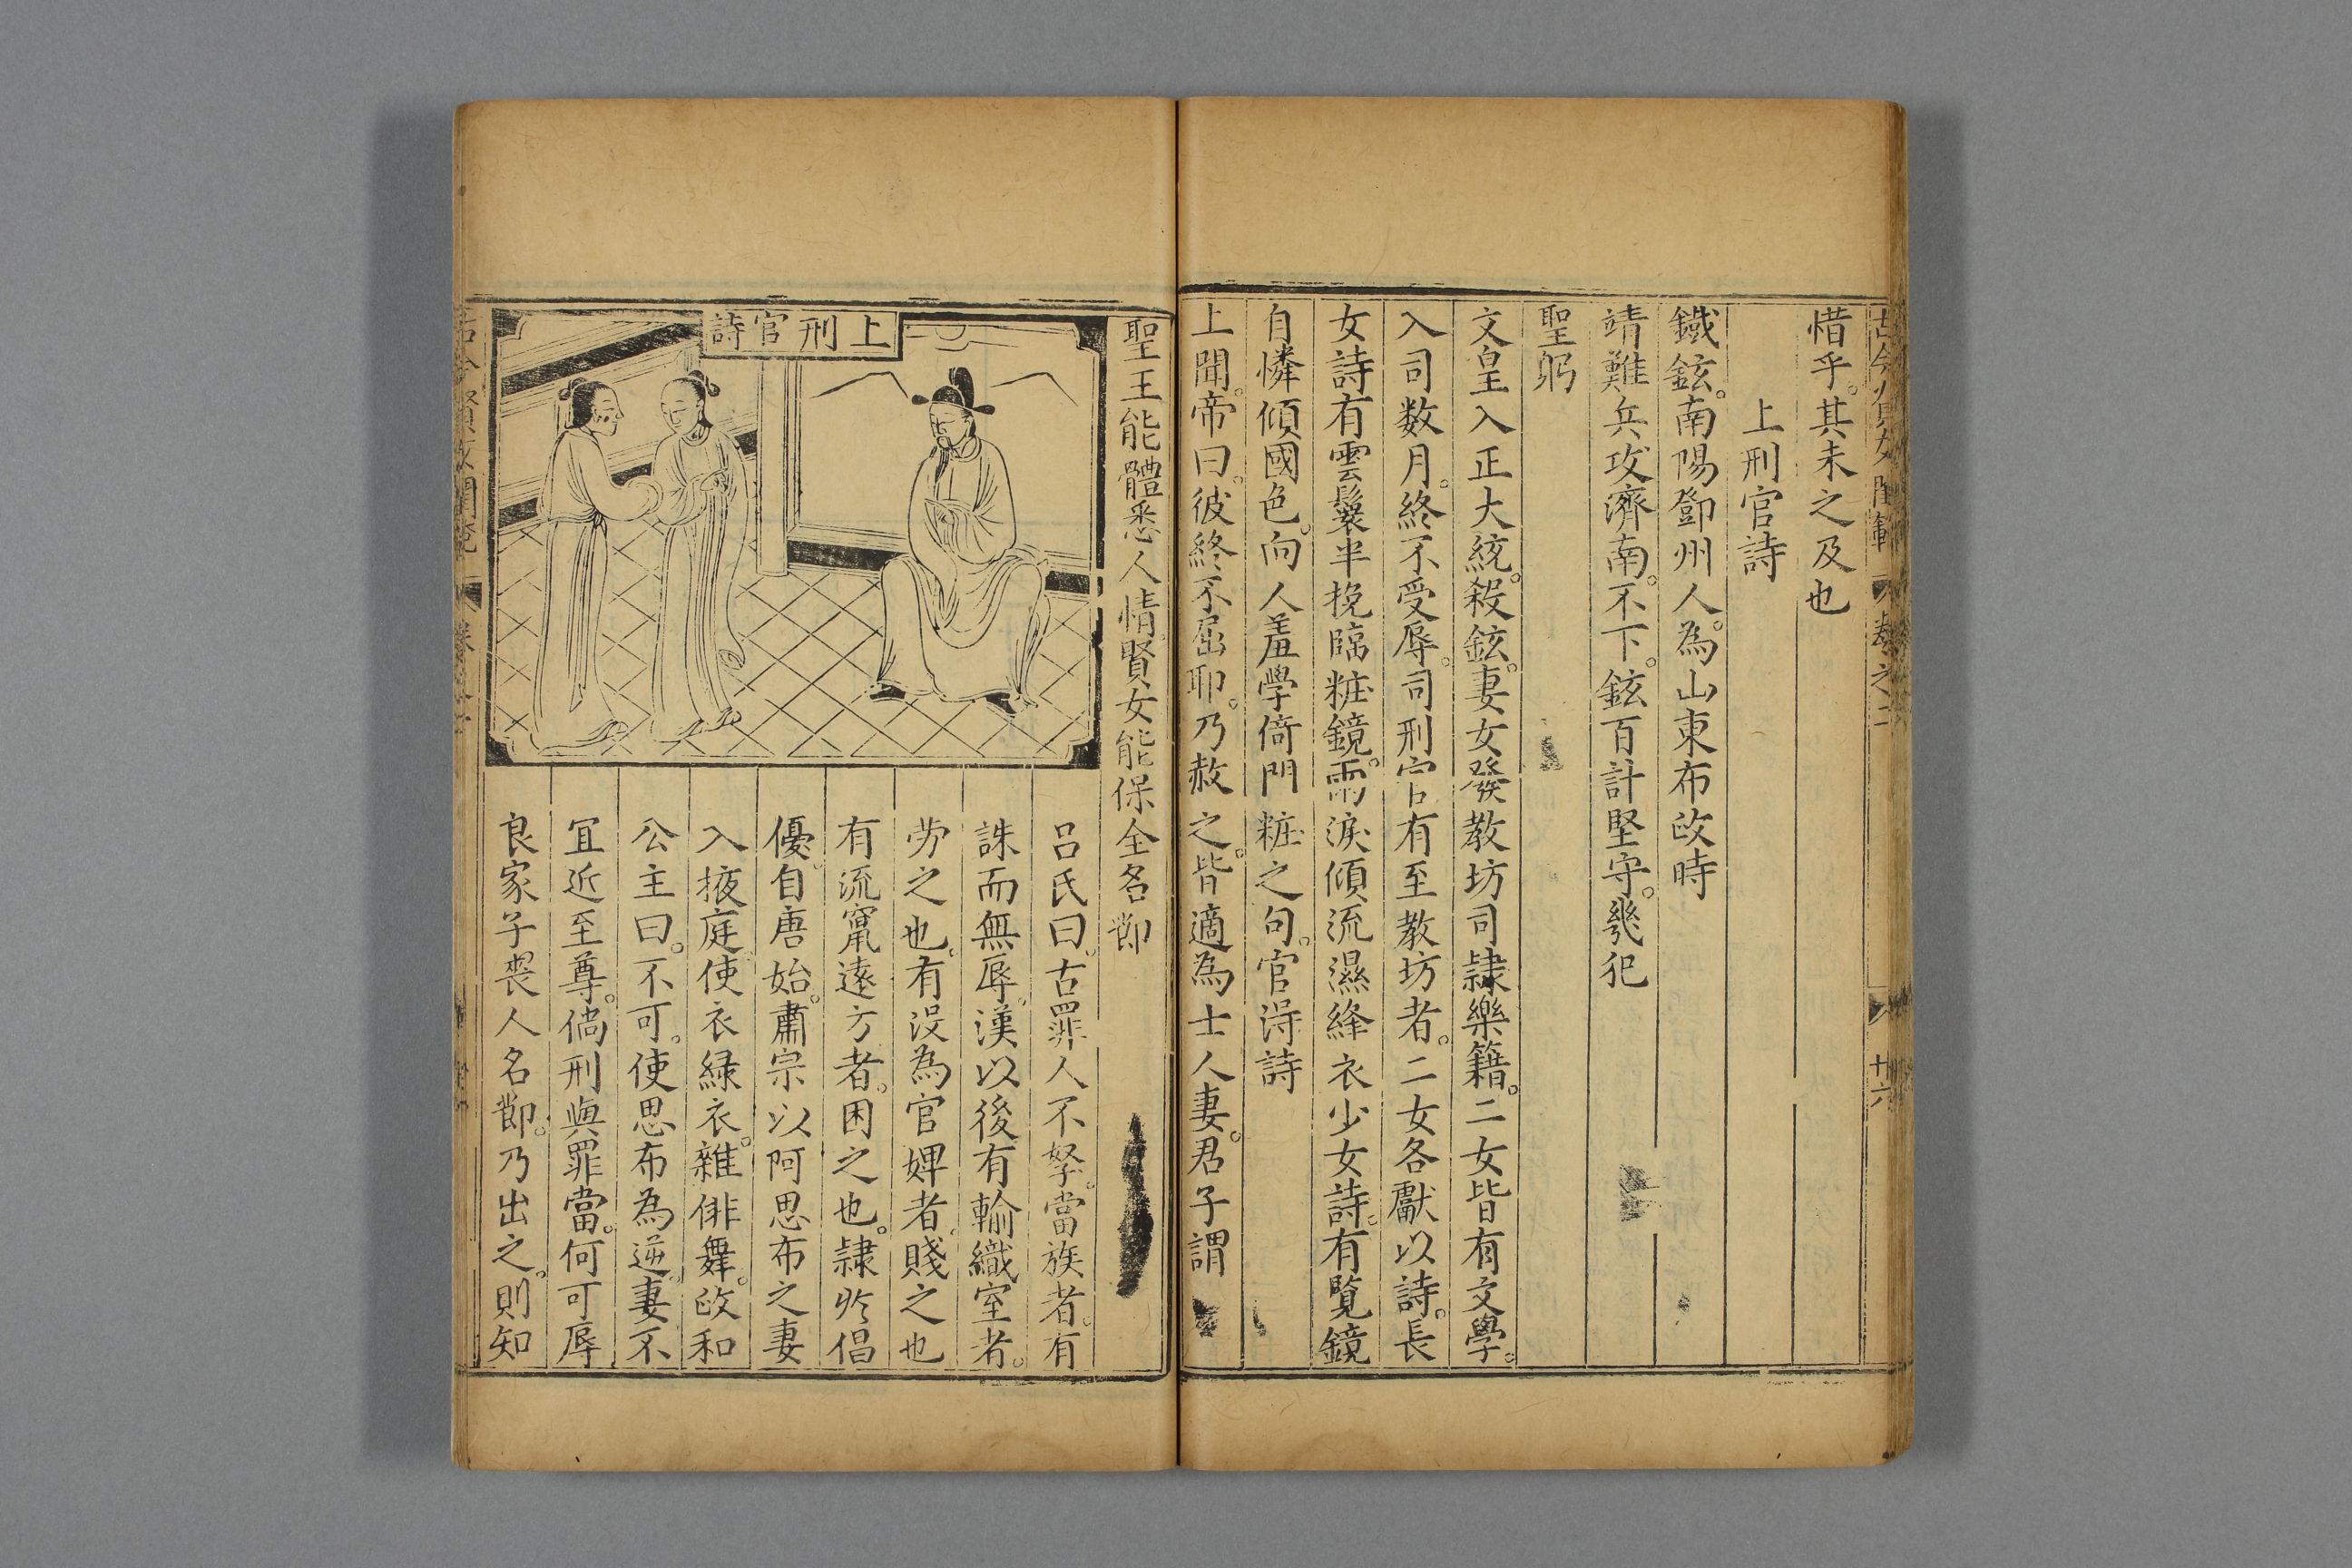 惜乎。其未之及也
上刑官詩
鐵鉉。南陽鄧州人。為山東布政時
靖難兵攻濟南。不下。鉉百計堅守。幾犯
聖躬
文皇入正大統。殺鉉。妻女發教坊司隸樂籍。二女皆有文學。
入司数月。終不受辱。司刑官有至教坊者。二女各獻以詩。長
女詩有雲鬟半挽臨粧鏡。雨淚傾流濕絳衣少女詩。有覽鏡
自憐傾國色。向人羞學倚門粧之句。官淂詩
上聞。帝曰。彼終不屈耶。乃赦之。皆適為士人妻。君子謂
聖王能體悉人情。賢女能保全名節
上刑官詩
呂氏曰。古罪人不孥。當族者。有
誅而無辱。漢以後有輸織室者。
劳之也。有没為官婢者。賤之也
有流竄遠方者。困之也。隸於倡
優。自唐始。肅宗以阿思布之妻
入掖庭。使衣緑衣。雜俳舞。政和
公主曰。不可。使思布為逆。妻不
宜近至尊。倘刑與罪當。何可辱
良家子喪人名節。乃出之。則知
古今賢女閨範 卷之二 十六